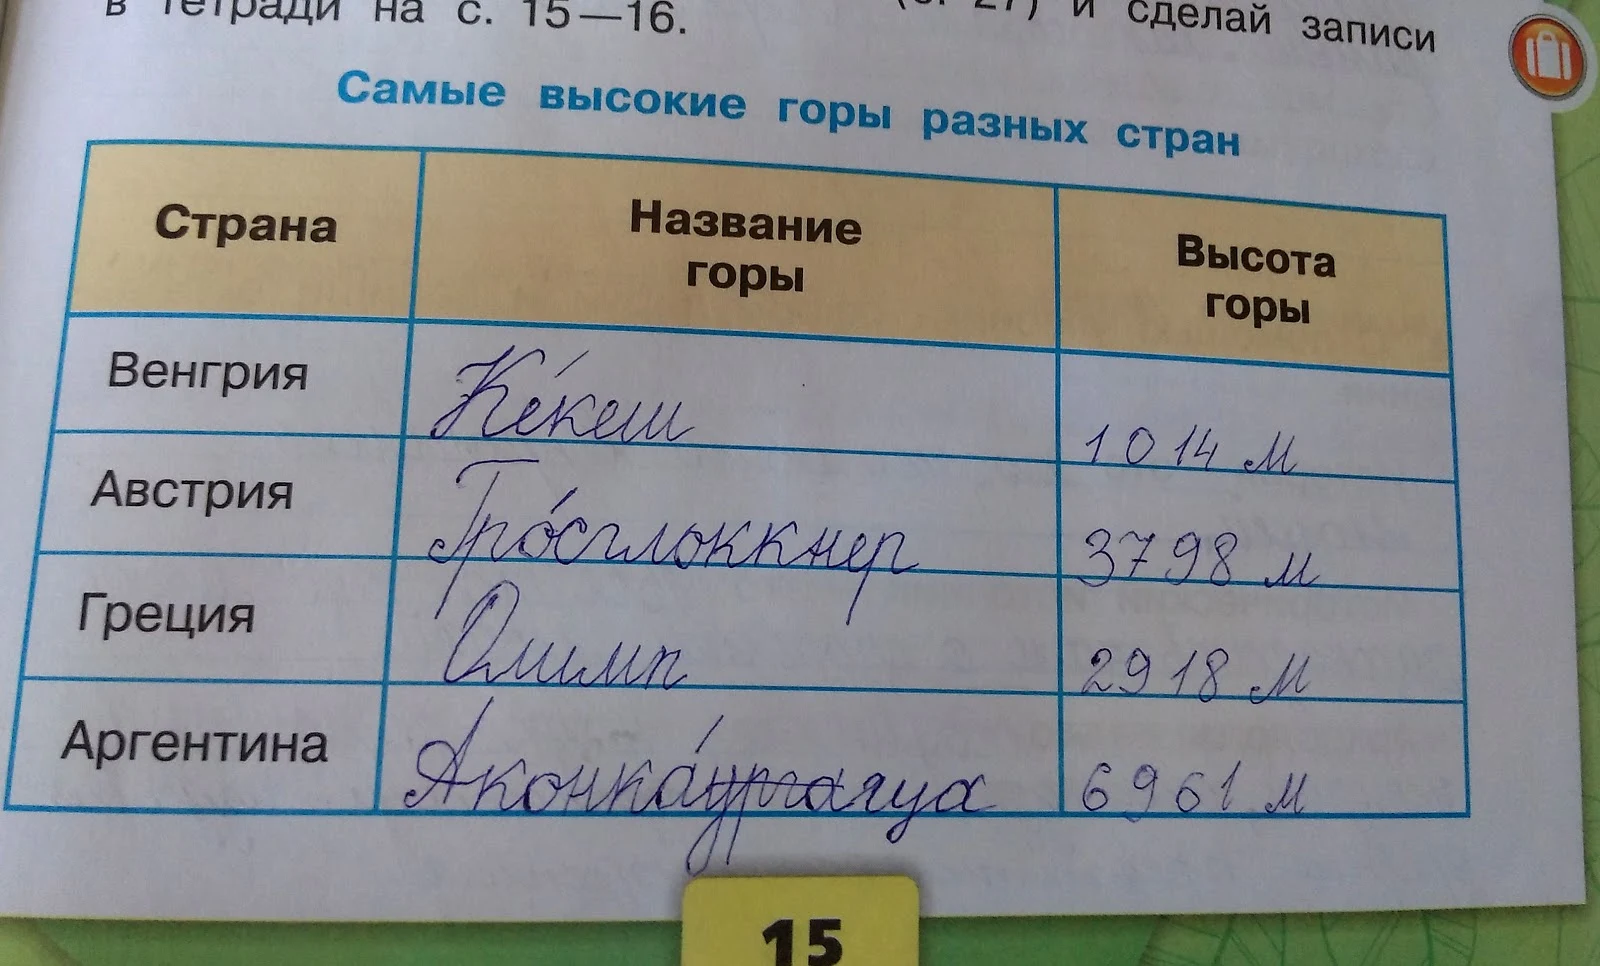 в тетради на с. 15—16. 27) и сделай записи
Самые высокие горы разных стран
Страна Название горы Высота горы
Венгрия Ке́кеш 1014 м
Австрия Гро́сглоккнер 3798 м
Греция Олимп 2918 м
Аргентина Аконка́гуа 6961 м
15